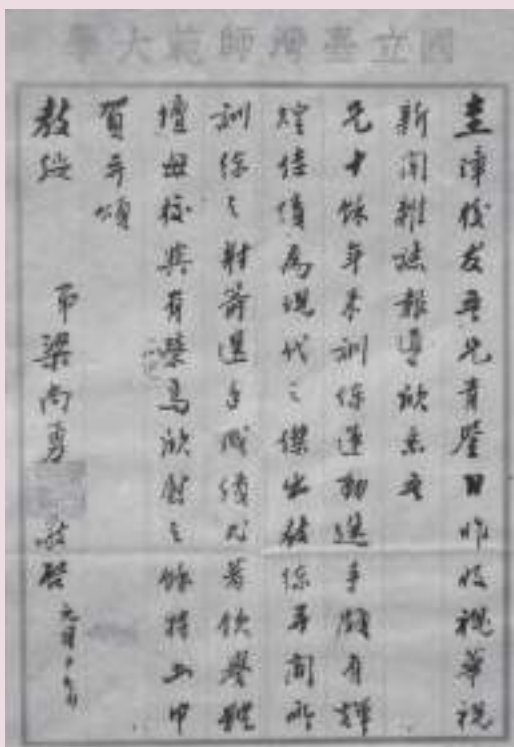 國立臺灣師範大學
圭漳校友吾兄青鑒日昨收視華視
新聞雜誌報導欣悉吾
兄十餘年來訓練運動選手頗有輝
煌佳績為現代之傑出教練聞所
訓練之射箭選手成績尤著飲譽體
壇母校與有榮焉欣慰之餘特函申
賀并頌
教綏 弟梁尚勇 敬啓 元月